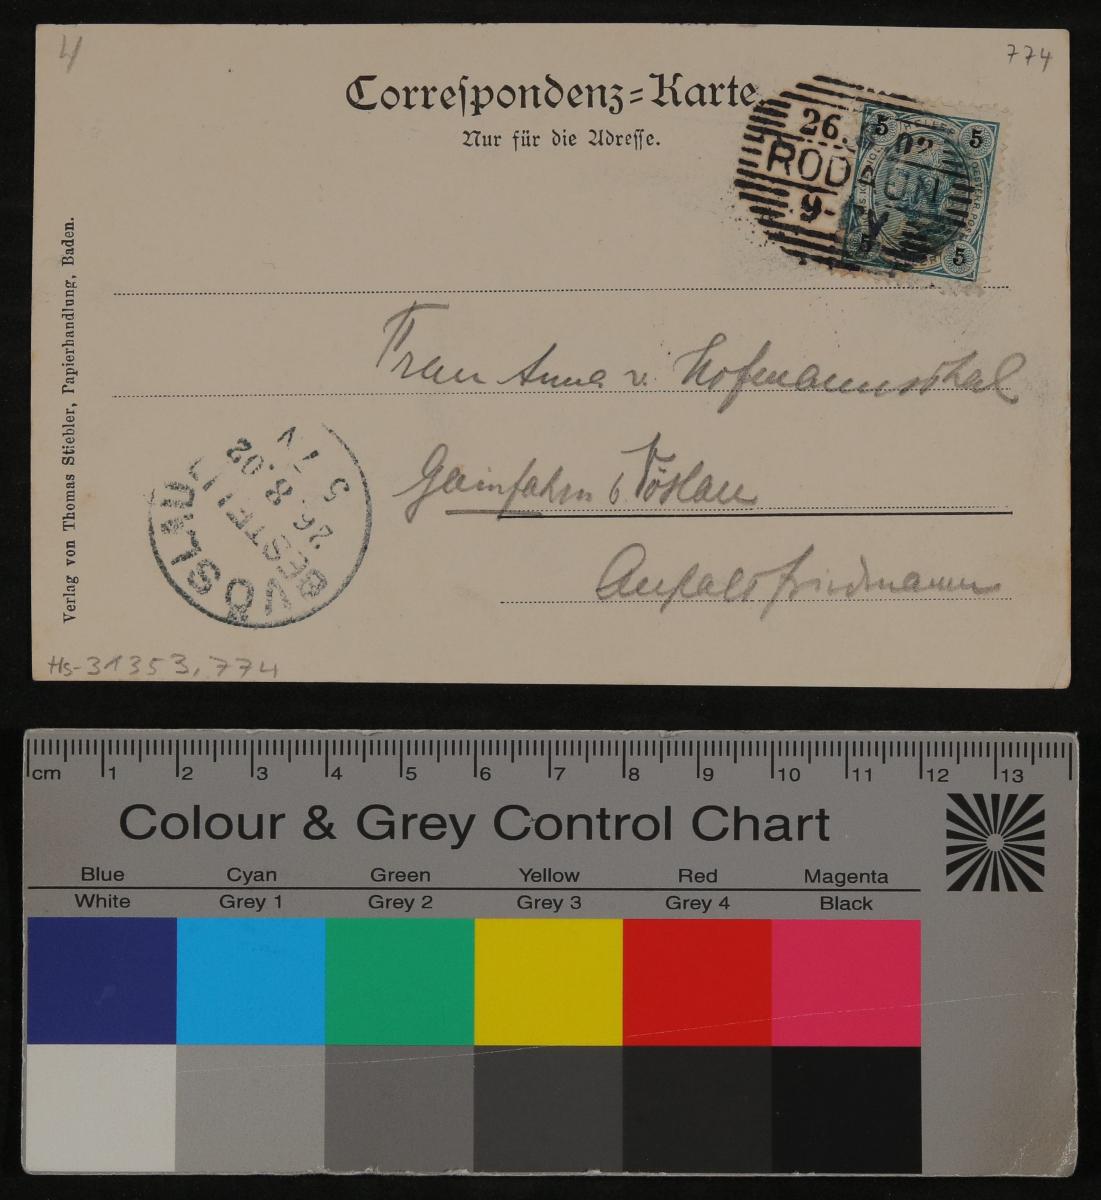 4
774
Correspondenz-Karte.
Nur für die Adresse.
26. 02
RODAUN
9- V
5 5
5 5
Frau Anna v. Hofmannsthal
Gainfahrn b. Vöslau
Anstalt Friedmann
VÖSLAU
BESTELLT
26 8.02
5 N
Verlag von Thomas Stiebler, Papierhandlung, Baden.
Hs-31353,774
cm 1 2 3 4 5 6 7 8 9 10 11 12 13
Colour & Grey Control Chart
Blue Cyan Green Yellow Red Magenta
White Grey 1 Grey 2 Grey 3 Grey 4 Black